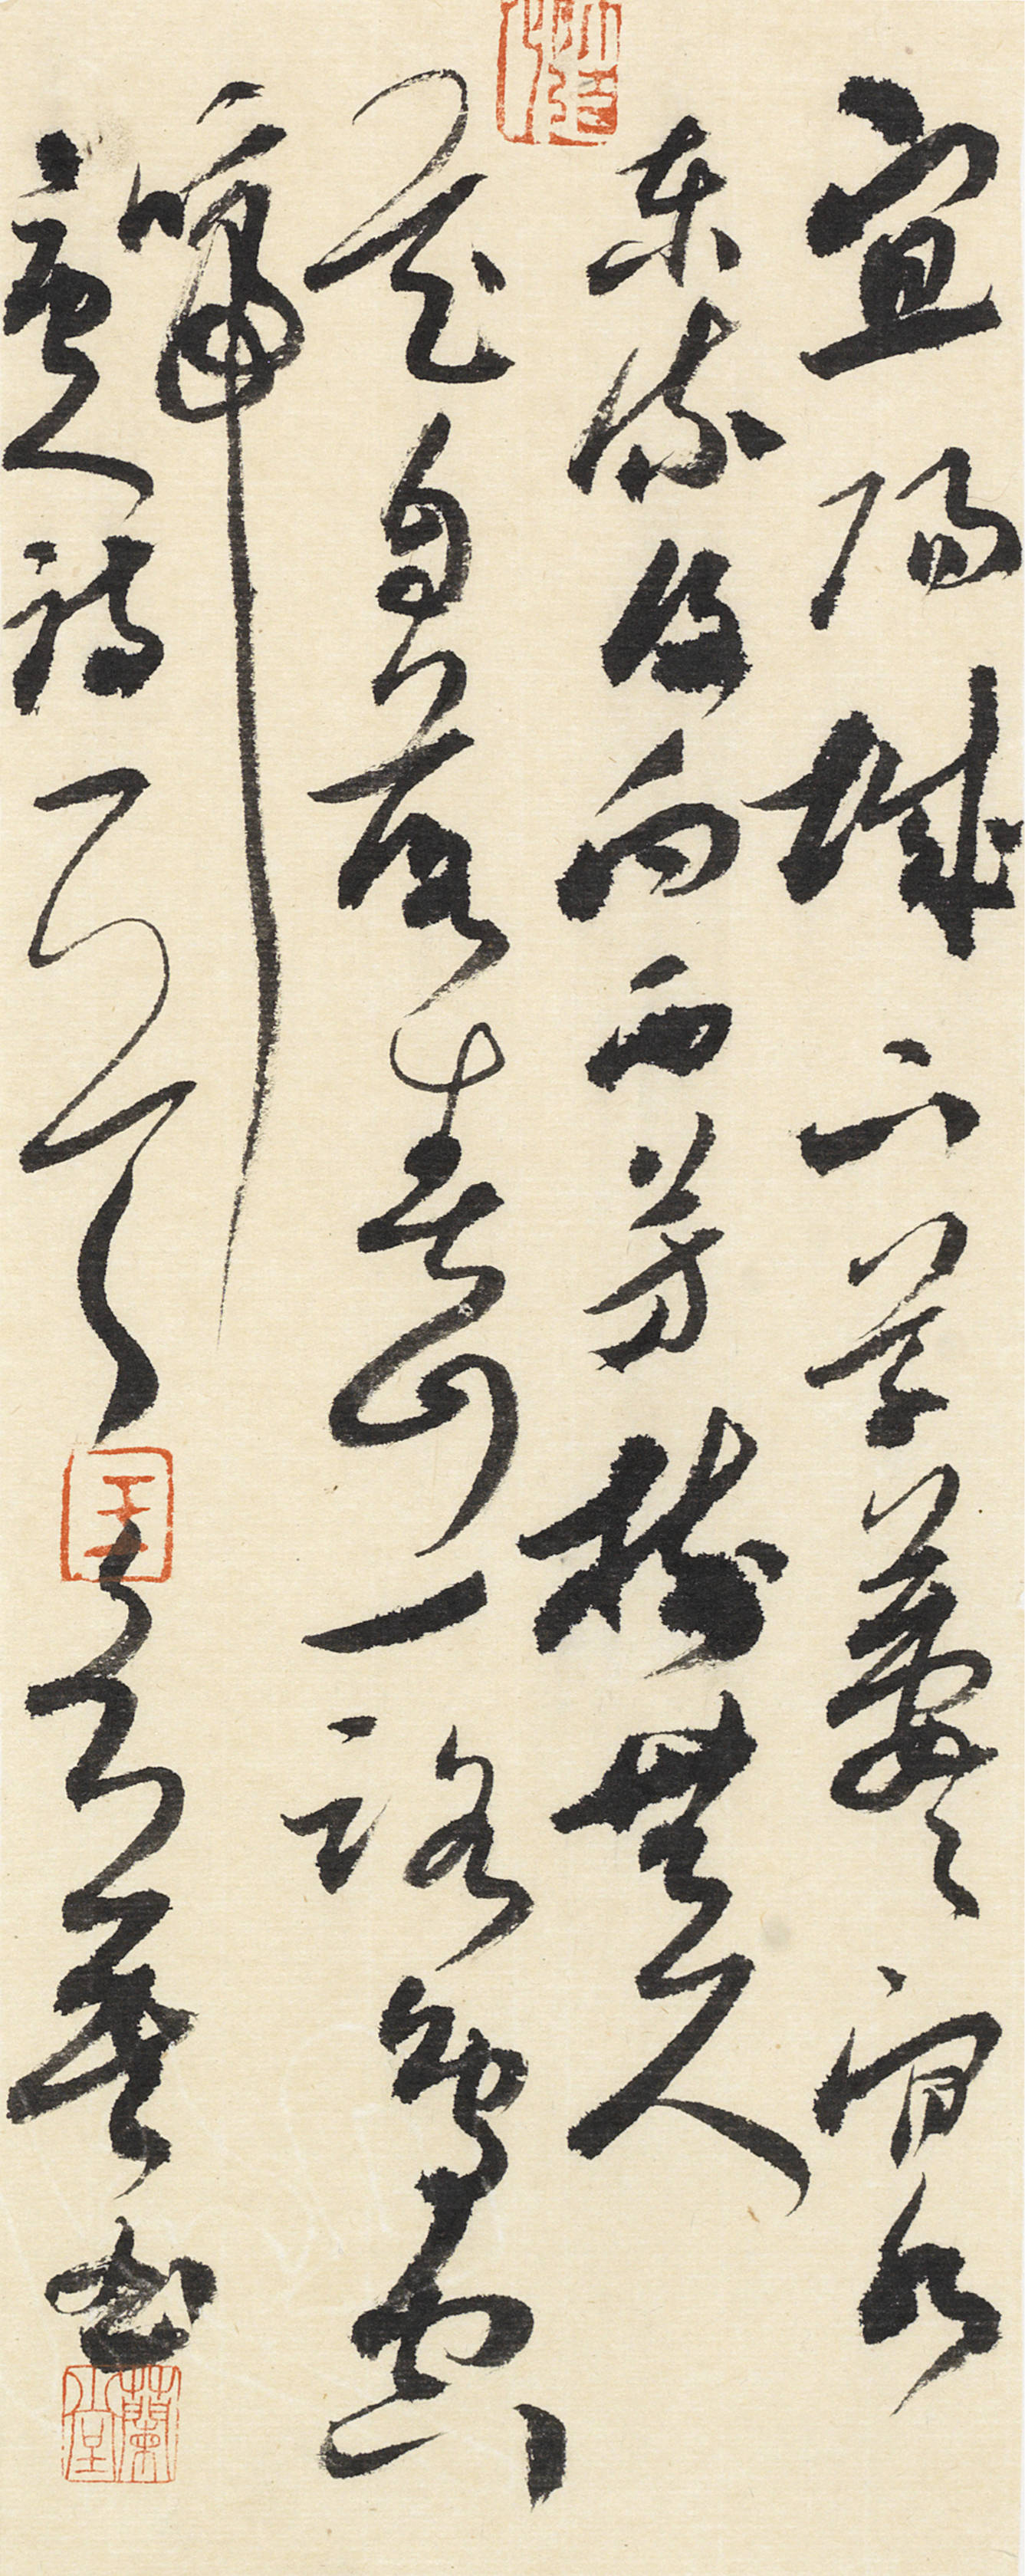 宜陽城下草萋萋澗水
東流復向西芳樹無人
花自落春山一路鳥空
啼
唐人詩一首
書
蘭堂